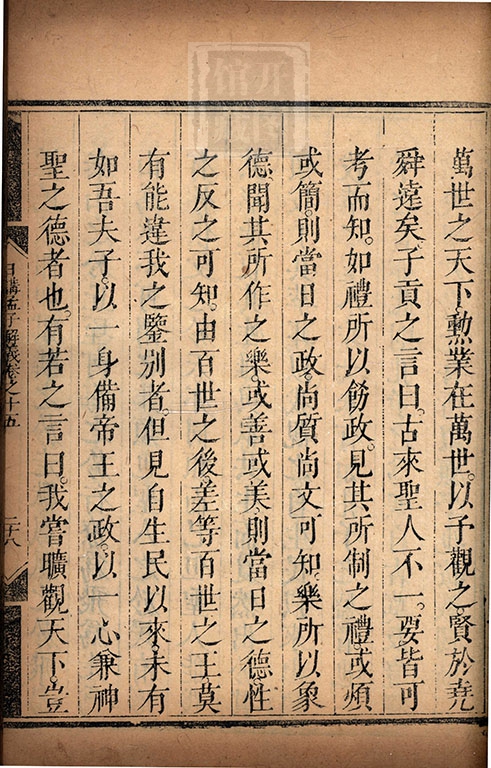 萬世之天下。勲業在萬世。以予觀之賢於堯
舜遠矣。子貢之言曰。古來聖人不一。要皆可
考而知。如禮所以飭政。見其所制之禮。或煩
或簡。則當日之政。尚質尚文可知。樂所以象
德。聞其所作之樂。或善或美。則當日之德。性
之反之可知。由百世之後。差等百世之王。莫
有能違我之鑒别者。但見自生民以來。未有
如吾夫子。以一身備帝王之政。以一心兼神
聖之德者也。有若之言曰。我嘗曠觀天下。豈
日講孟子解義卷之十五 二十八